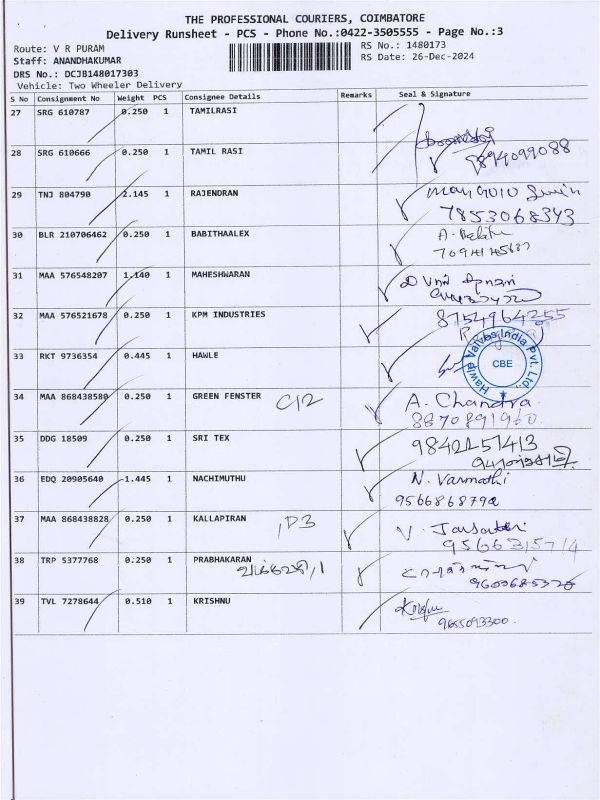 THE PROFESSIONAL COURIERS, COIMBATORE
Delivery Runsheet - PCS - Phone No.:0422-3505555 - Page No.:3
Route: V R PURAM
RS No.: 1480173
Staff: ANANDHAKUMAR
RS Date: 26-Dec-2024
DRS No.: DCJB148017303
Vehicle: Two Wheeler Delivery
S No Consignment No Weight PCS Consignee Details Remarks Seal & Signature
27 SRG 610787 0.250 1 TAMILRASI
28 SRG 610666 0.250 1 TAMIL RASI
9894099088
29 TNJ 804790 2.145 1 RAJENDRAN
7853068343
30 BLR 210706462 0.250 1 BABITHAALEX
31 MAA 576548207 1.140 1 MAHESHWARAN
32 MAA 576521678 0.250 1 KPM INDUSTRIES 8754964255
33 RKT 9736354 0.445 1 HAWLE
Hawle Valves India Pvt. Ltd.,
CBE
34 MAA 868438580 0.250 1 GREEN FENSTER C12 A. Chandra
8870891960
35 DDG 18509 0.250 1 SRI TEX
36 EDQ 20905640 1.445 1 NACHIMUTHU N. Varmathi
9566868792
37 MAA 868438828 0.250 1 KALLAPIRAN
38 TRP 5377768 0.250 1 PRABHAKARAN
39 TVL 7278644 0.510 1 KRISHNU
9655093300